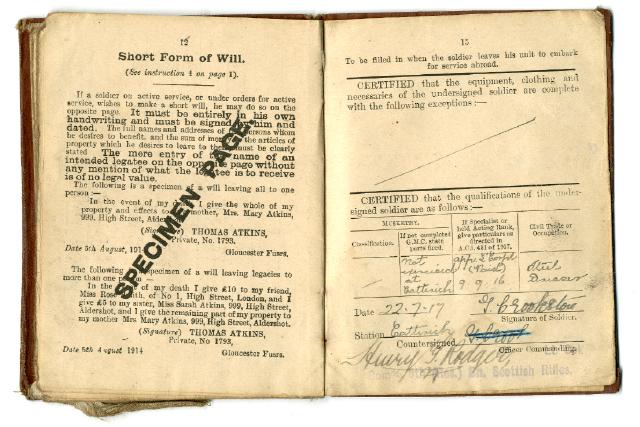 12
Short Form of Will.
(See instruction 4 on page 1).
If a soldier on active service, or under orders for active
service, wishes to make a short will, he may do so on the
opposite page. It must be entirely in his own
handwriting and must be signed by him and
dated. The full names and addresses of the persons whom
he desires to benefit, and the sum of money or the articles of
property which he desires to leave to them, must be clearly
stated. The mere entry of the name of an
intended legatee on the opposite page without
any mention of what the legatee is to receive
is of no legal value.
The following is a specimen of a will leaving all to one
person:—
In the event of my death I give the whole of my
property and effects to my mother, Mrs. Mary Atkins,
999, High Street, Aldershot.
(Signature) THOMAS ATKINS,
Private, No. 1793,
Date 5th August, 1914 Gloucester Fusrs.
The following is a specimen of a will leaving legacies to
more than one person:—
In the event of my death I give £10 to my friend,
Miss Rose Smith, of No. 1, High Street, London, and I
give £5 to my sister, Miss Sarah Atkins, 999, High Street,
Aldershot, and I give the remaining part of my property to
my mother Mrs. Mary Atkins, 999, High Street, Aldershot.
(Signature) THOMAS ATKINS,
Private, No. 1793,
Date 5th August 1914 Gloucester Fusrs.
SPECIMEN PAGE.
13
To be filled in when the soldier leaves his unit to embark
for service abroad.
CERTIFIED that the equipment, clothing and
necessaries of the undersigned soldier are complete
with the following exceptions:—
CERTIFIED that the qualifications of the under-
signed soldier are as follows:—
MUSKETRY.
Classification.
If not completed
G.M.C. state
parts fired.
If Specialist or
held Acting Rank,
give particulars as
directed in
A.C.I. of 1917.
Civil Trade or
Occupation.
not
exercised
at
app. L/Corpl
(Paid)
9.9.16
Steel
Date 22-7-17
Signature of Soldier.
Station
Countersigned
Officer Commanding
Scottish Rifles.